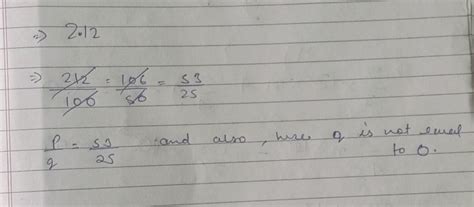 ⇒ 2.12
⇒ 212/100 = 106/50 = 53/25
p/q = 53/25 and also, here q is not equal
to 0.